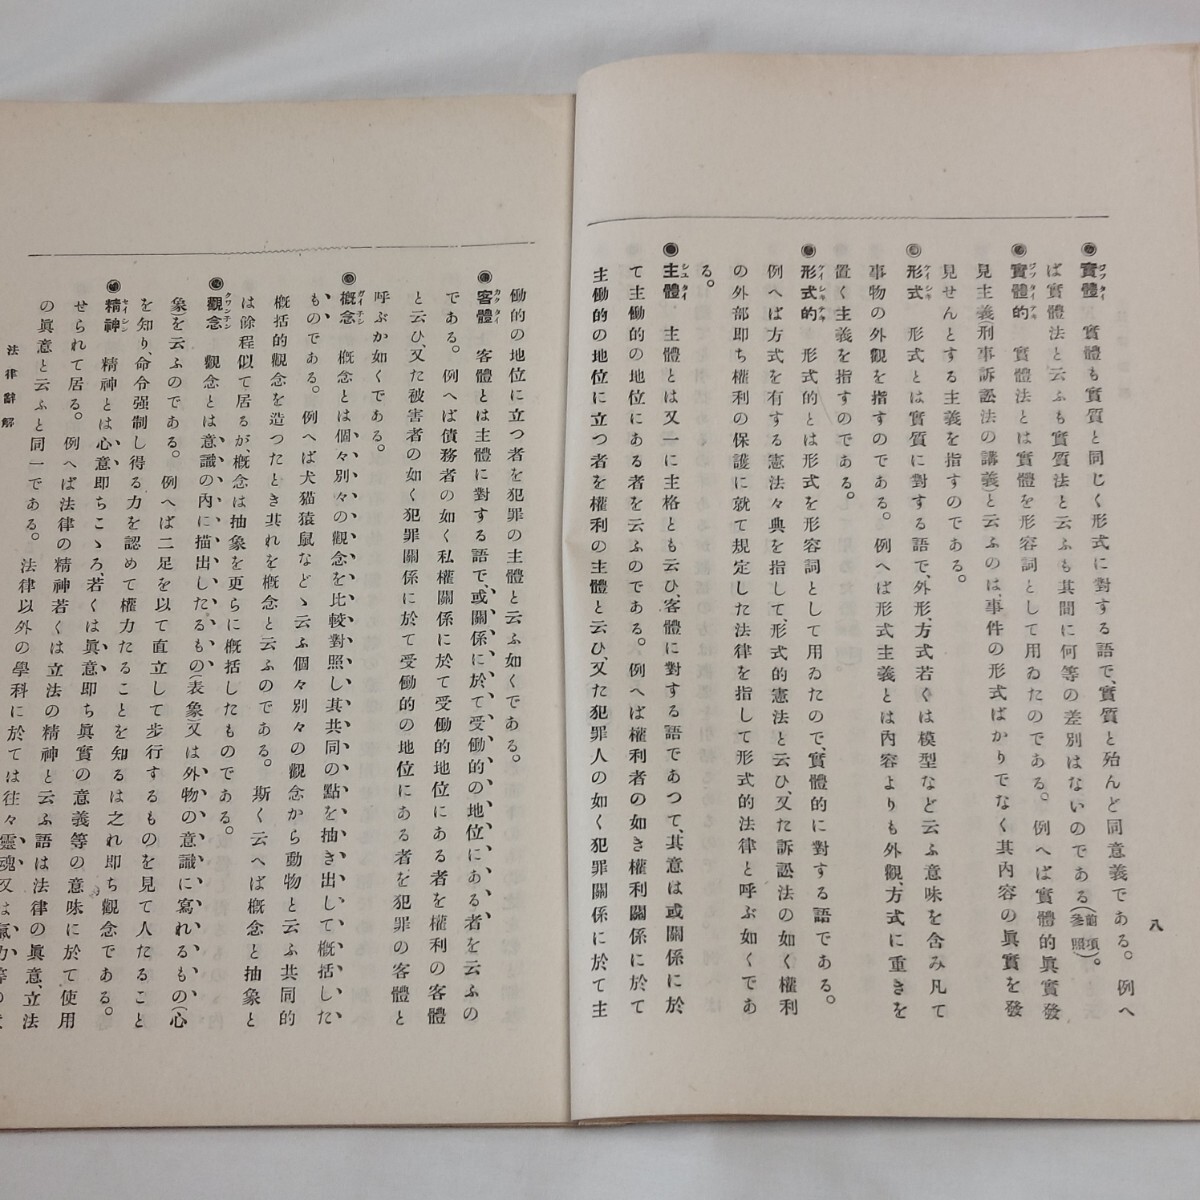 八
◉實體 實體も實質と同じく形式に對する語で、實質と殆んど同意義である。例へ
ば實體法と云ふも實質法と云ふも其間に何等の差別はないのである（前項參照）。
◉實體的 實體法とは實體を形容詞として用ゐたのである。例へば實體的眞實發
見主義（刑事訴訟法の講義）と云ふのは、事件の形式ばかりでなく其内容の眞實を發
見せんとする主義を指すのである。
◉形式 形式とは實質に對する語で、外形、方式若くは模型など云ふ意味を含み凡て
事物の外觀を指すのである。例へば形式主義とは内容よりも外觀、方式に重きを
置く主義を指すのである。
◉形式的 形式的とは形式を形容詞として用ゐたので、實體的に對する語である。
例へば方式を有する憲法々典を指して、形式的憲法と云ひ、又た訴訟法の如く權利
の外部即ち權利の保護に就て規定した法律を指して形式的法律と呼ぶ如くであ
る。
◉主體 主體とは又一に主格とも云ひ、客體に對する語であつて、其意は或關係に於
て主働的の地位にある者を云ふのである。例へば權利者の如き權利關係に於て
主働的の地位に立つ者を權利の主體と云ひ、又た犯罪人の如く犯罪關係に於て主
働的の地位に立つ者を犯罪の主體と云ふ如くである。
◉客體 客體とは主體に對する語で、或關係に於て受働的の地位にある者を云ふの
である。例へば債務者の如く私權關係に於て受働的地位にある者を權利の客體
と云ひ、又た被害者の如く犯罪關係に於て受働的の地位にある者を犯罪の客體と
呼ぶか如くである。
◉概念 概念とは個々別々の觀念を比較對照し其共同の點を抽き出して概括した
ものである。例へば犬猫猿鼠などゝ云ふ個々別々の觀念から動物と云ふ共同的
概括的觀念を造つたとき其れを概念と云ふのである。斯く云へば概念と抽象と
は餘程似て居るが、概念は抽象を更らに概括したものである。
◉觀念 觀念とは意識の内に描出したるもの（表象）又は外物の意識に寫れるもの（心
象）を云ふのである。例へば二足を以て直立して歩行するものを見て人たること
を知り、命令强制し得る力を認めて權力たることを知るは之れ即ち觀念である。
◉精神 精神とは心意即ちこゝろ、若くは眞意即ち眞實の意義等の意味に於て使用
せられて居る。例へば法律の精神若くは立法の精神と云ふ語は法律の眞意、立法
の眞意と云ふと同一である。法律以外の學科に於ては往々靈魂又は氣力等の
法律辭解